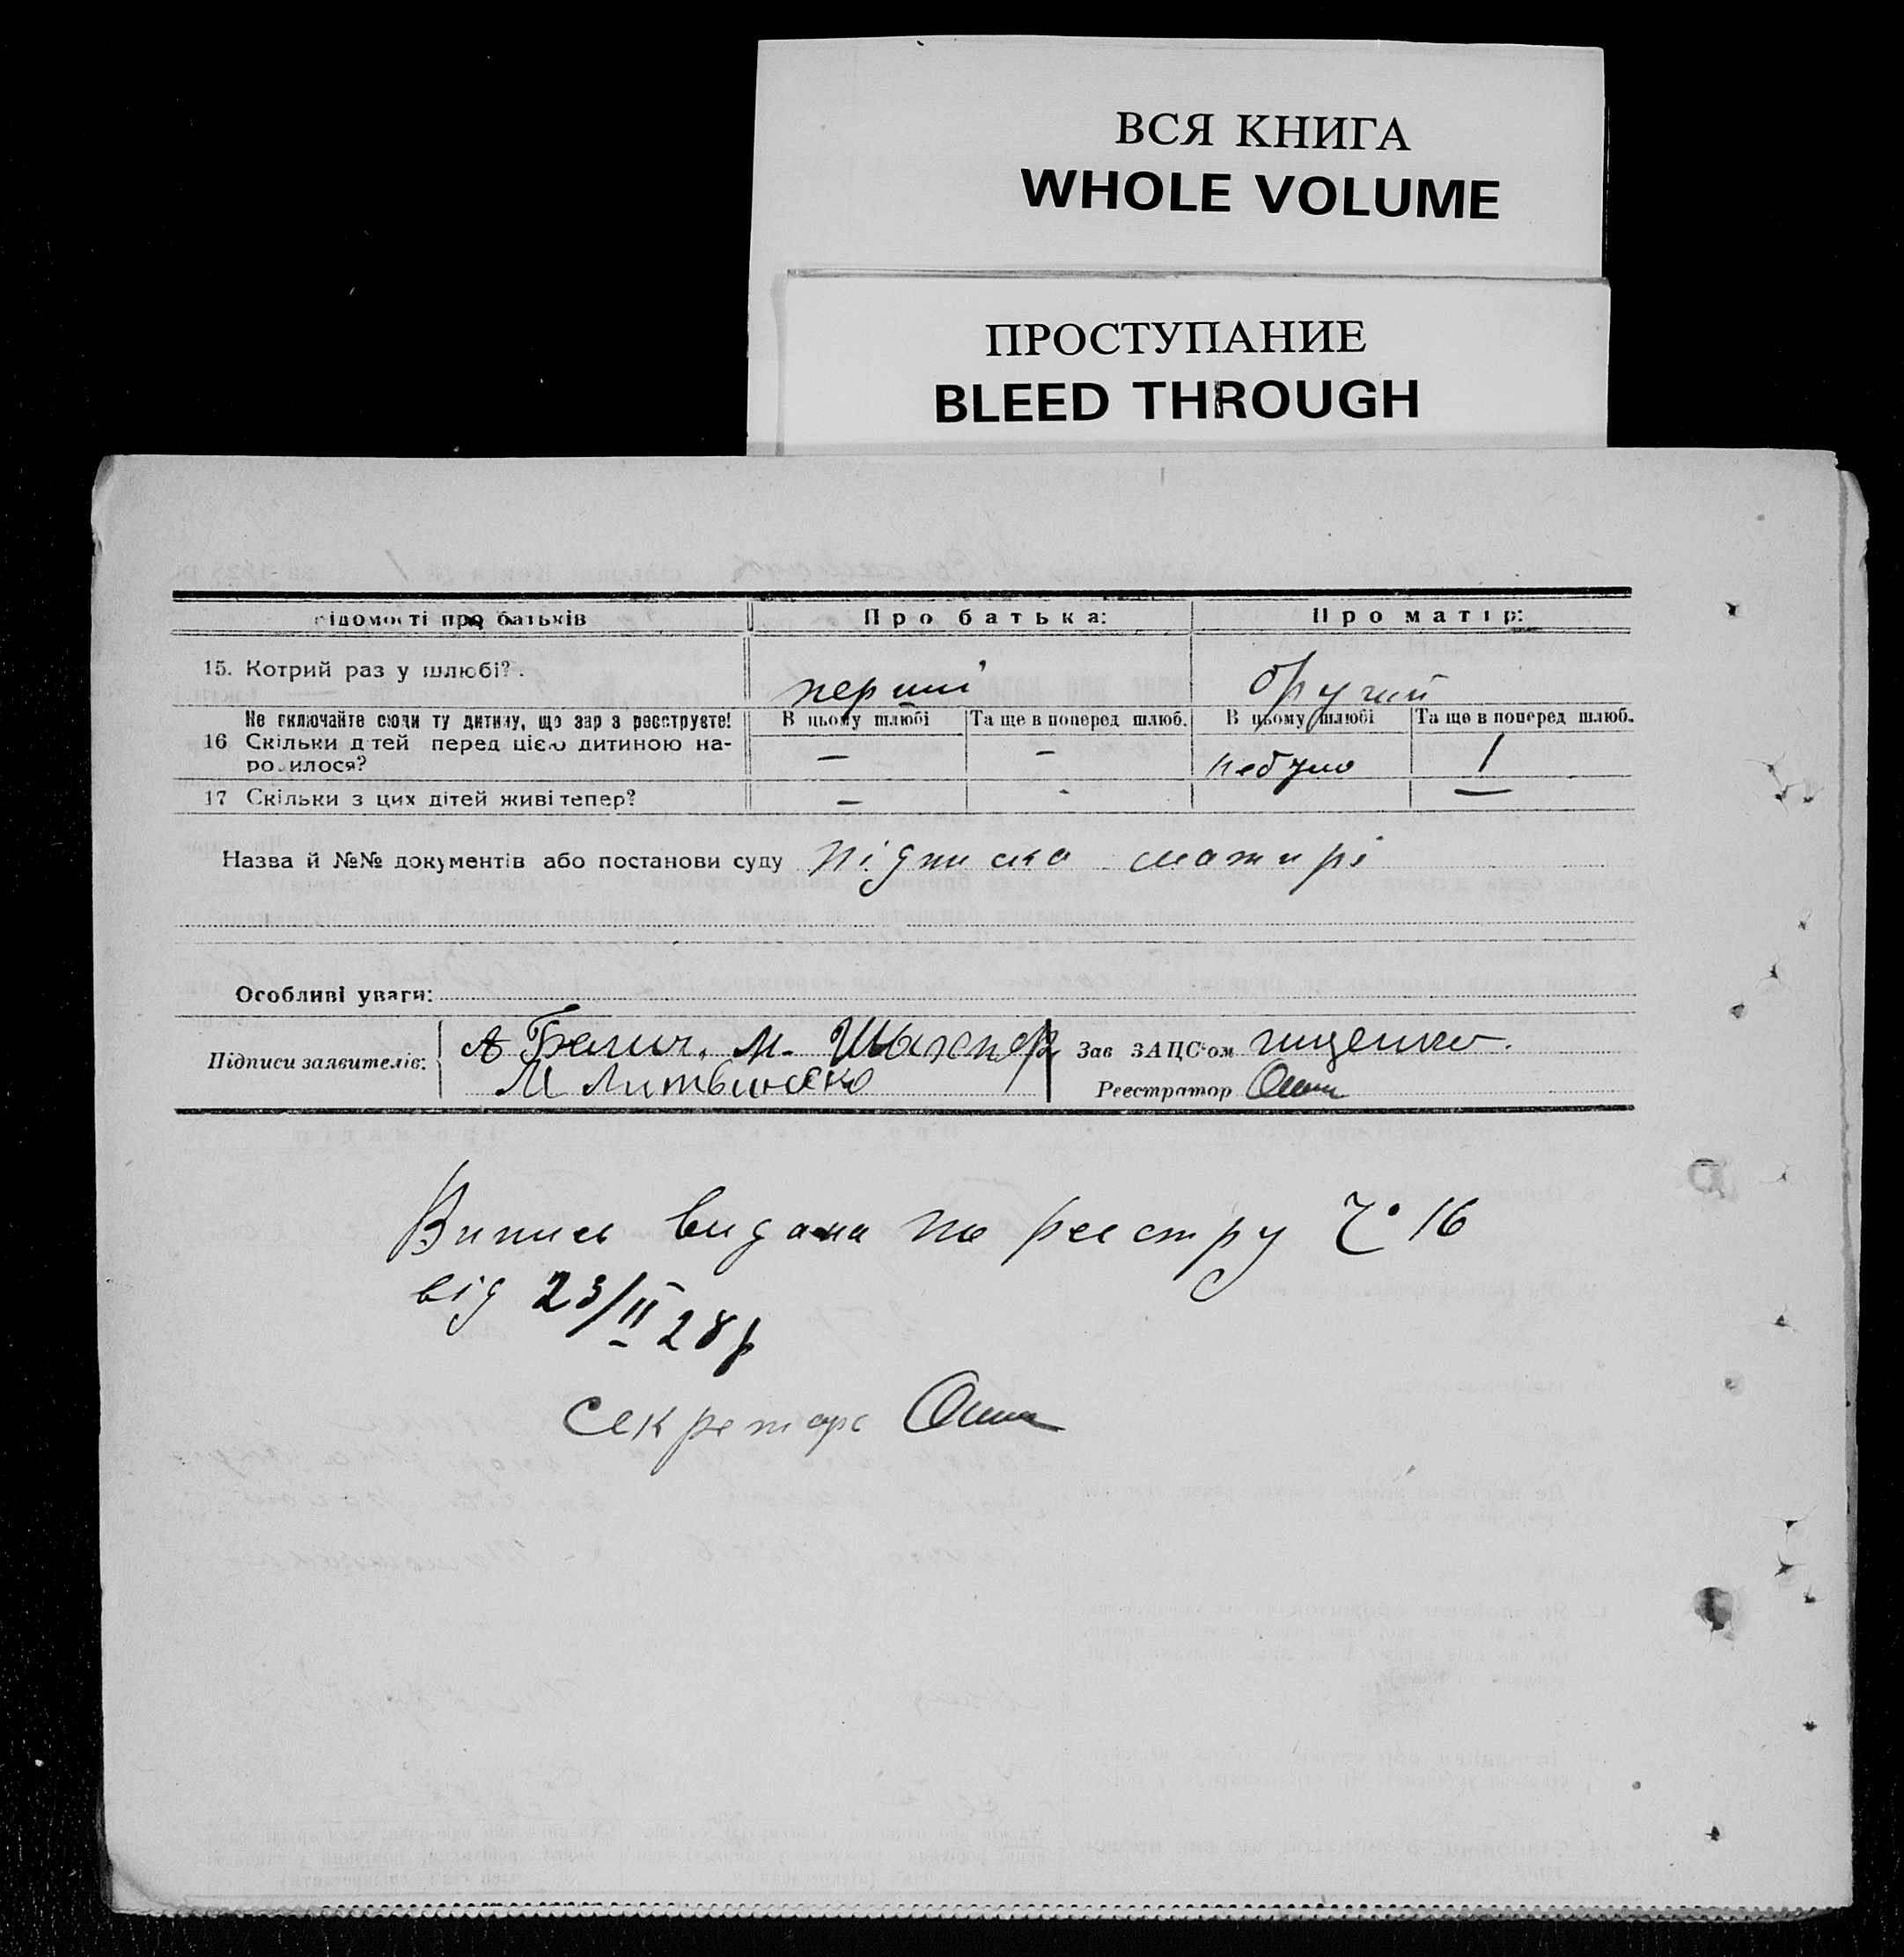 ВСЯ КНИГА
WHOLE VOLUME
ПРОСТУПАНИЕ
BLEED THROUGH
ідомості про батьків Про батька: Про матір:
15. Котрий раз у шлюбі? перший другий
Не включайте сюди ту дитину, що зараз реєструєте! В цьому шлюбі Та ще в поперед шлюб. В цьому шлюбі Та ще в поперед шлюб.
16 Скільки дітей перед цією дитиною на-
родилося? — — небуло 1
17 Скільки з цих дітей живі тепер? — - —
Назва й №№ документів або постанови суду підписка матирі
Особливі уваги:
Підписи заявителів: А М. Зав ЗАЦС'ом
М Литвиненко Реєстратор
Випись видана по реєстру Ч° 16
від 23/II 28 р
Секретарь